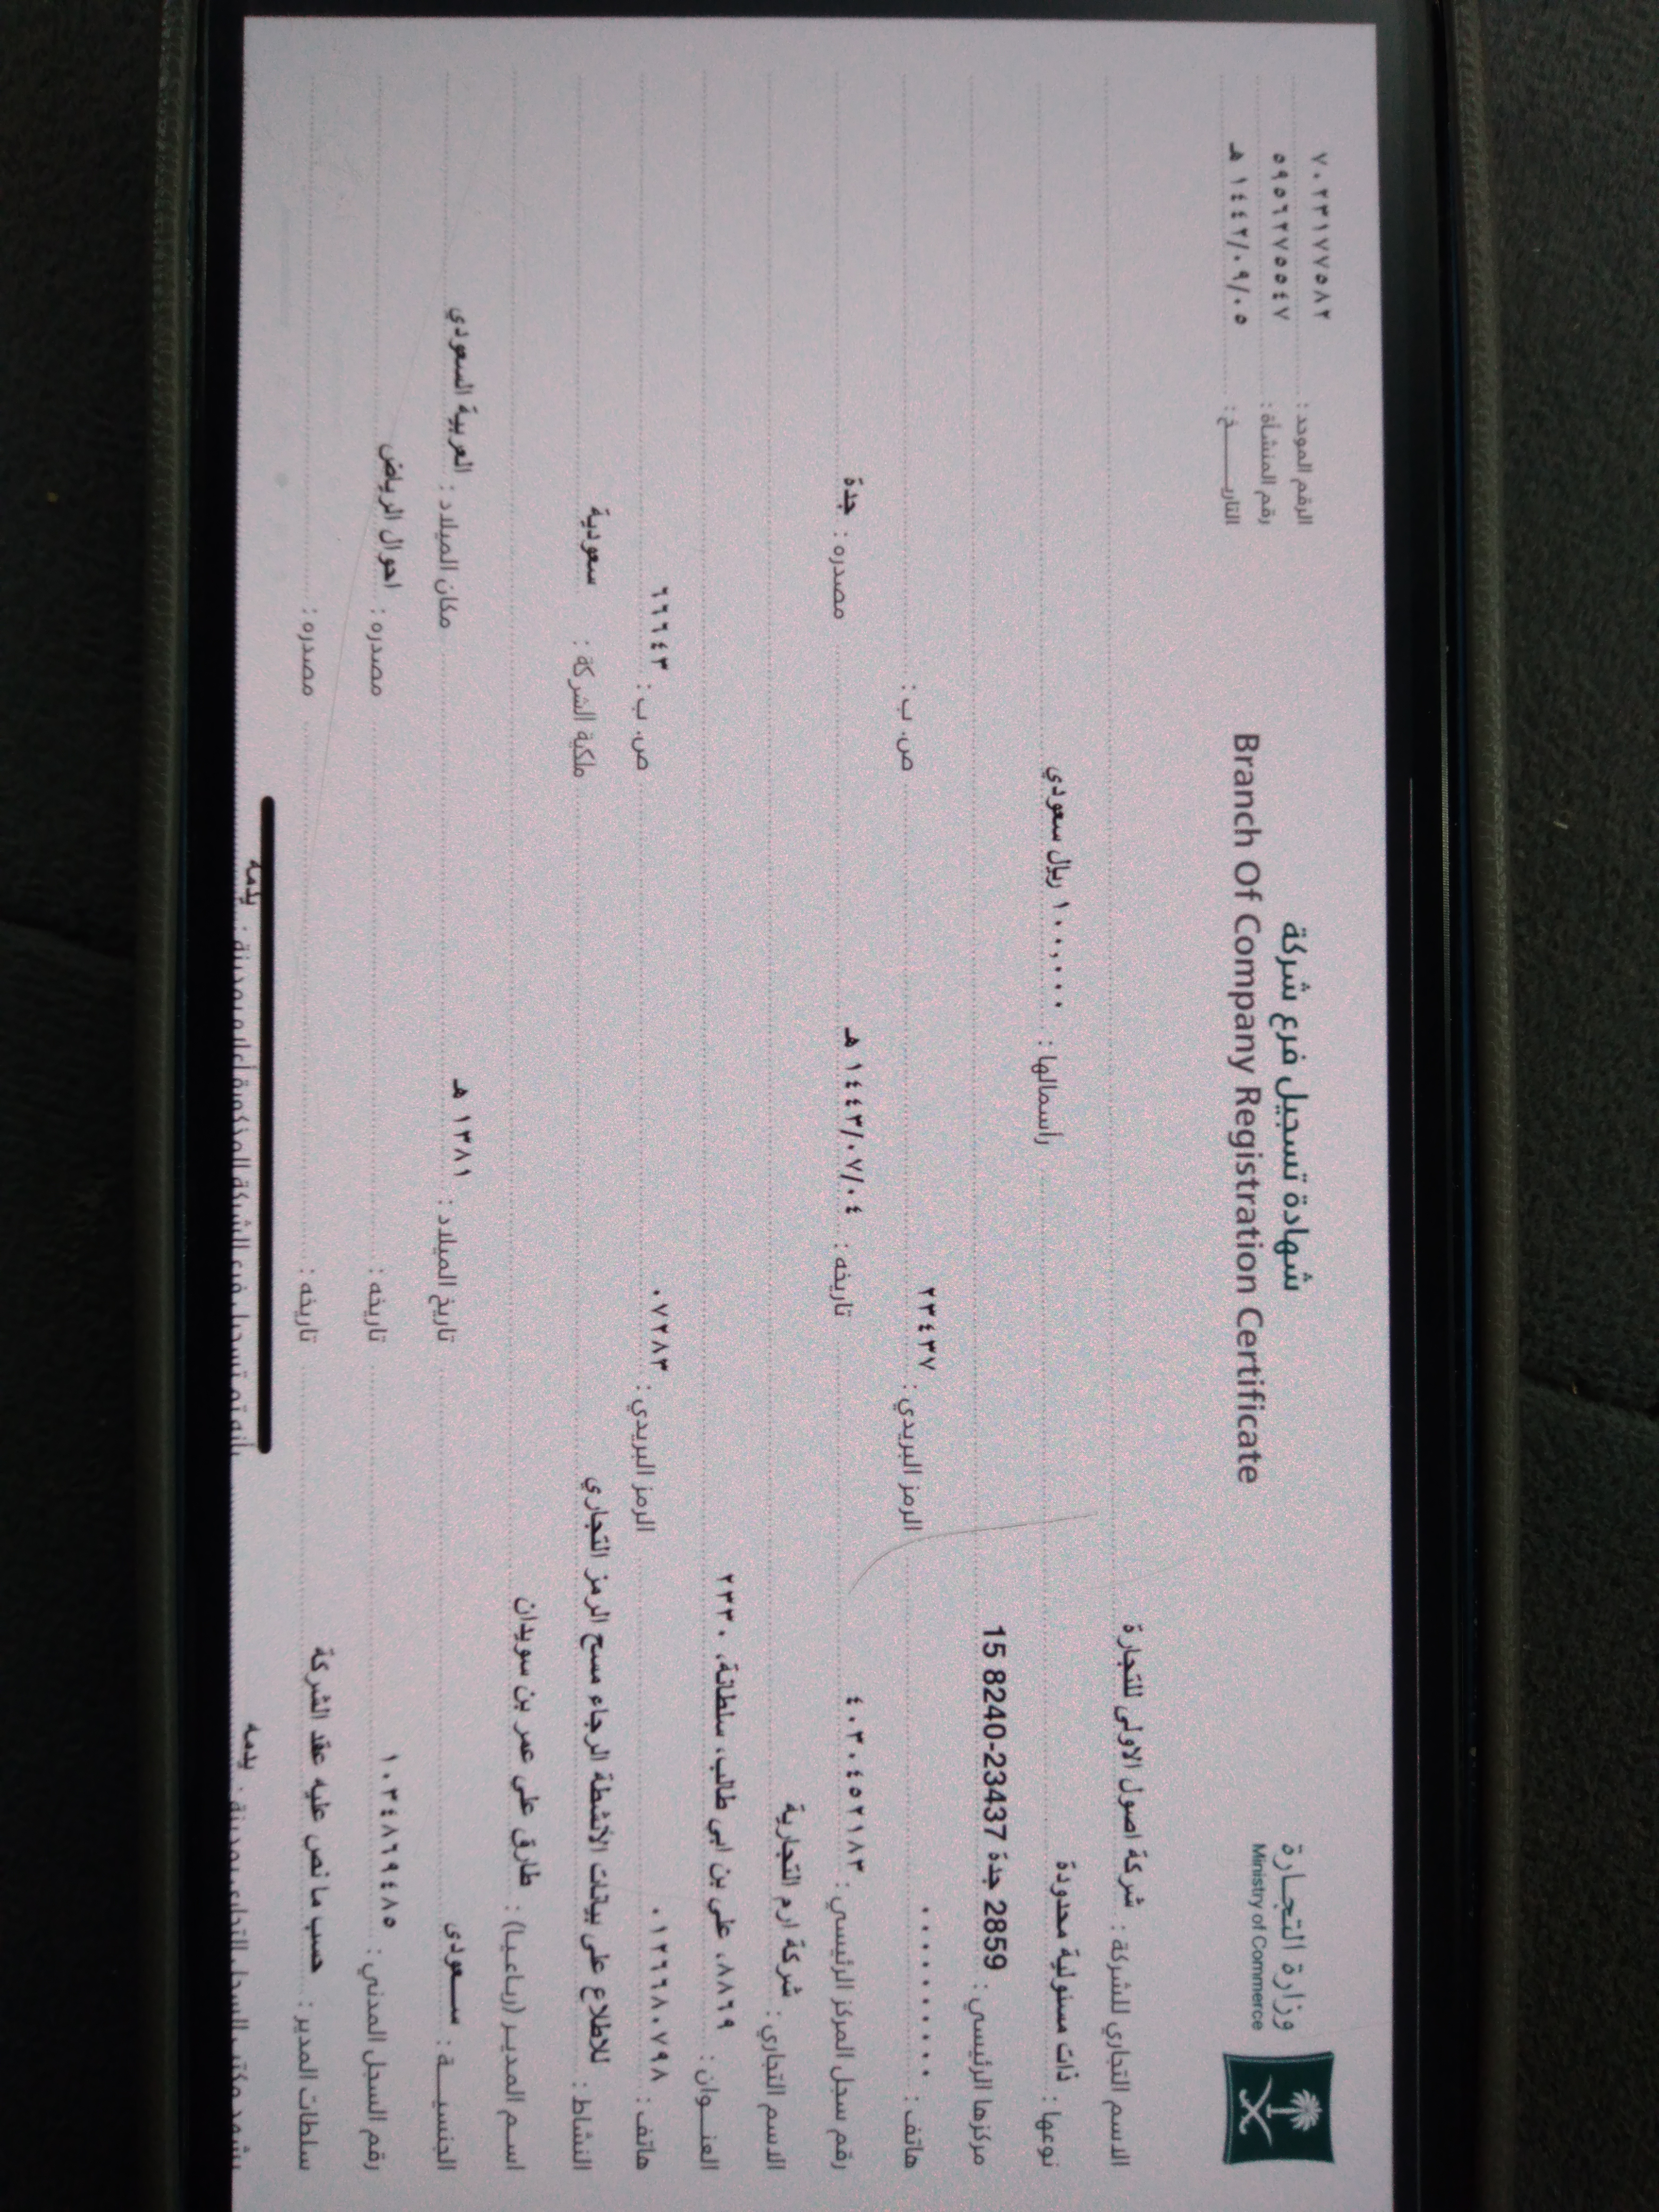 وزارة التجارة
Ministry of Commerce
شهادة تسجيل فرع شركة
Branch Of Company Registration Certificate
الرقم الموحد : ٧٠٢٣١٧٧٥٨٢
رقم المنشأة : ٥٩٥٦٢٧٥٥٤٧
التاريـــــخ : ١٤٤٢/٠٩/٠٥ هـ
الاسم التجاري للشركة : شركة اصول الاولى للتجارة
نوعها : ذات مسئولية محدودة راسمالها : ١٠٠,٠٠٠ ريال سعودي
مركزها الرئيسي : 2859 جدة 23437-8240 15
هاتف : ٠٠٠٠٠٠٠٠٠ الرمز البريدي : ٢٣٤٣٧ ص. ب :
رقم سجل المركز الرئيسي : ٤٠٣٠٤٥٢١٨٣ تاريخه : ١٤٤٣/٠٧/٠٤ هـ مصدره : جدة
الاسم التجاري : شركة ارم التجارية
العنــوان : ٨٨٦٩، علي بن ابي طالب، سلطانة، ٢٣٣٠
هاتف : ٠١٢٦٦٨٠٧٩٨ الرمز البريدي : ٠٧٢٨٣ ص. ب : ٦٦٦٤٣
النشاط : للاطلاع على بيانات الأنشطة الرجاء مسح الرمز التجاري ملكية الشركة : سعودية
اسم المديـر (رباعيـا) : طارق علي عمر بن سويدان
الجنسيـــة : سـعودى تاريخ الميلاد : ١٣٨١ هـ مكان الميلاد : العربية السعودي
رقم السجل المدني : ١٠٣٤٨٦٩٤٨٥ تاريخه : مصدره : احوال الرياض
سلطات المدير : حسب ما نص عليه عقد الشركة تاريخه : مصدره :